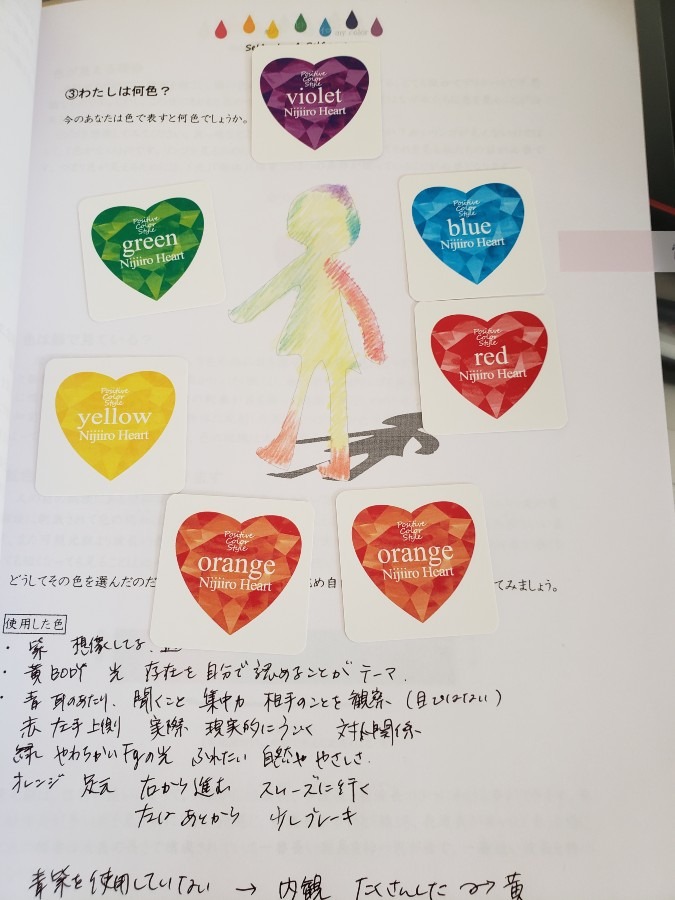 my color
③わたしは何色？
今のあなたは色で表すと何色でしょうか。
Positive
Color
Style
violet
Nijiiro Heart
Positive
Color
Style
green
Nijiiro Heart
Positive
Color
Style
blue
Nijiiro Heart
Positive
Color
Style
red
Nijiiro Heart
Positive
Color
Style
yellow
Nijiiro Heart
Positive
Color
Style
orange
Nijiiro Heart
Positive
Color
Style
orange
Nijiiro Heart
どうしてその色を選んだのだ
め自
てみましょう。
使用した色
・紫 想像してる
・黄BODY 光 存在を自分で認めることがテーマ.
・青 耳のあたり. 聞くこと 集中力 相手のことを観察 (目ではない)
赤 左手上側 実際 現実的にうごく 対人関係
緑 やわらかい 光 ふれたい 自然や やさしさ.
オレンジ 足元 右から進む スムーズに行く
左は あとから 少しブレーキ
青紫を使用していない → 内観 たくさんした 黄